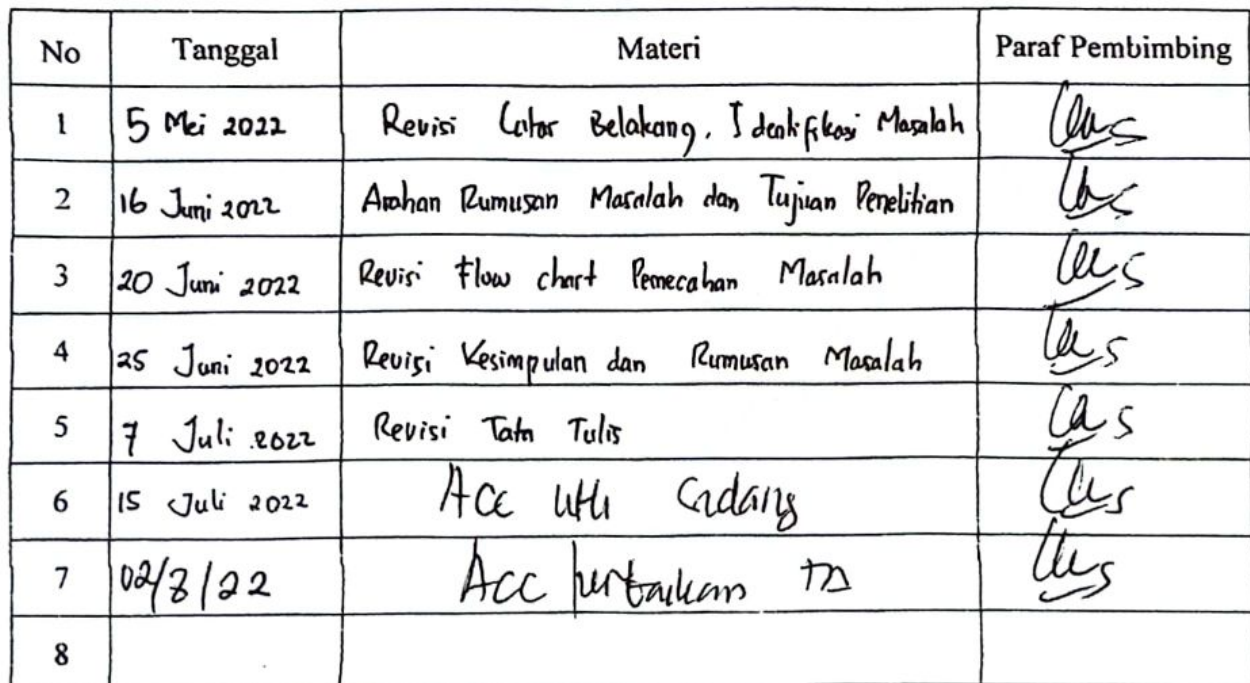 No Tanggal Materi Paraf Pembimbing
1 5 Mei 2022 Revisi Latar Belakang, Identifikasi Masalah
2 16 Juni 2022 Arahan Rumusan Masalah dan Tujuan Penelitian
3 20 Juni 2022 Revisi Flow chart Pemecahan Masalah
4 25 Juni 2022 Revisi Kesimpulan dan Rumusan Masalah
5 7 Juli 2022 Revisi Tata Tulis
6 15 Juli 2022 Acc utk Sidang
7 02/8/22 Acc perbaikan TA
8